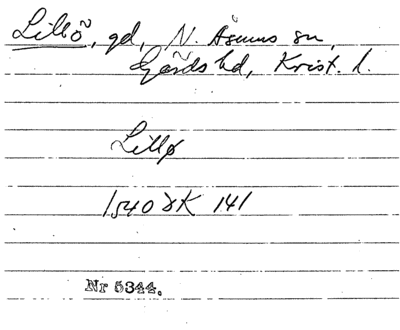 Lillö, gd, N. Åsums sn,
Gärds hd, Krist. l.
Lillø
1540 DK 141
Nr 5344.